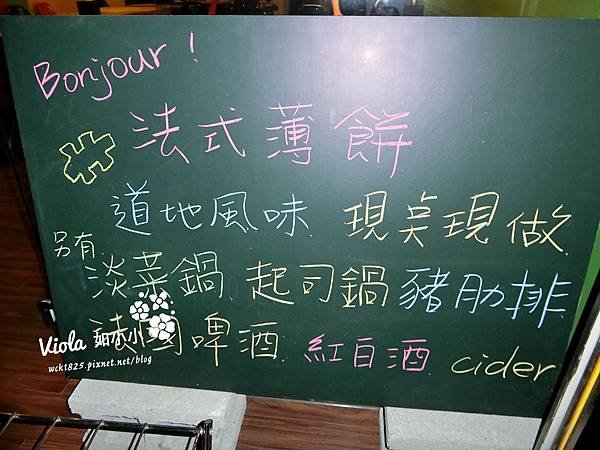 Bonjour!
法式薄餅
道地風味 現点現做
另有
淡菜鍋 起司鍋 豬肋排
法國啤酒 紅白酒 cider
Viola 茹小小
wckt825.pixnet.net/blog